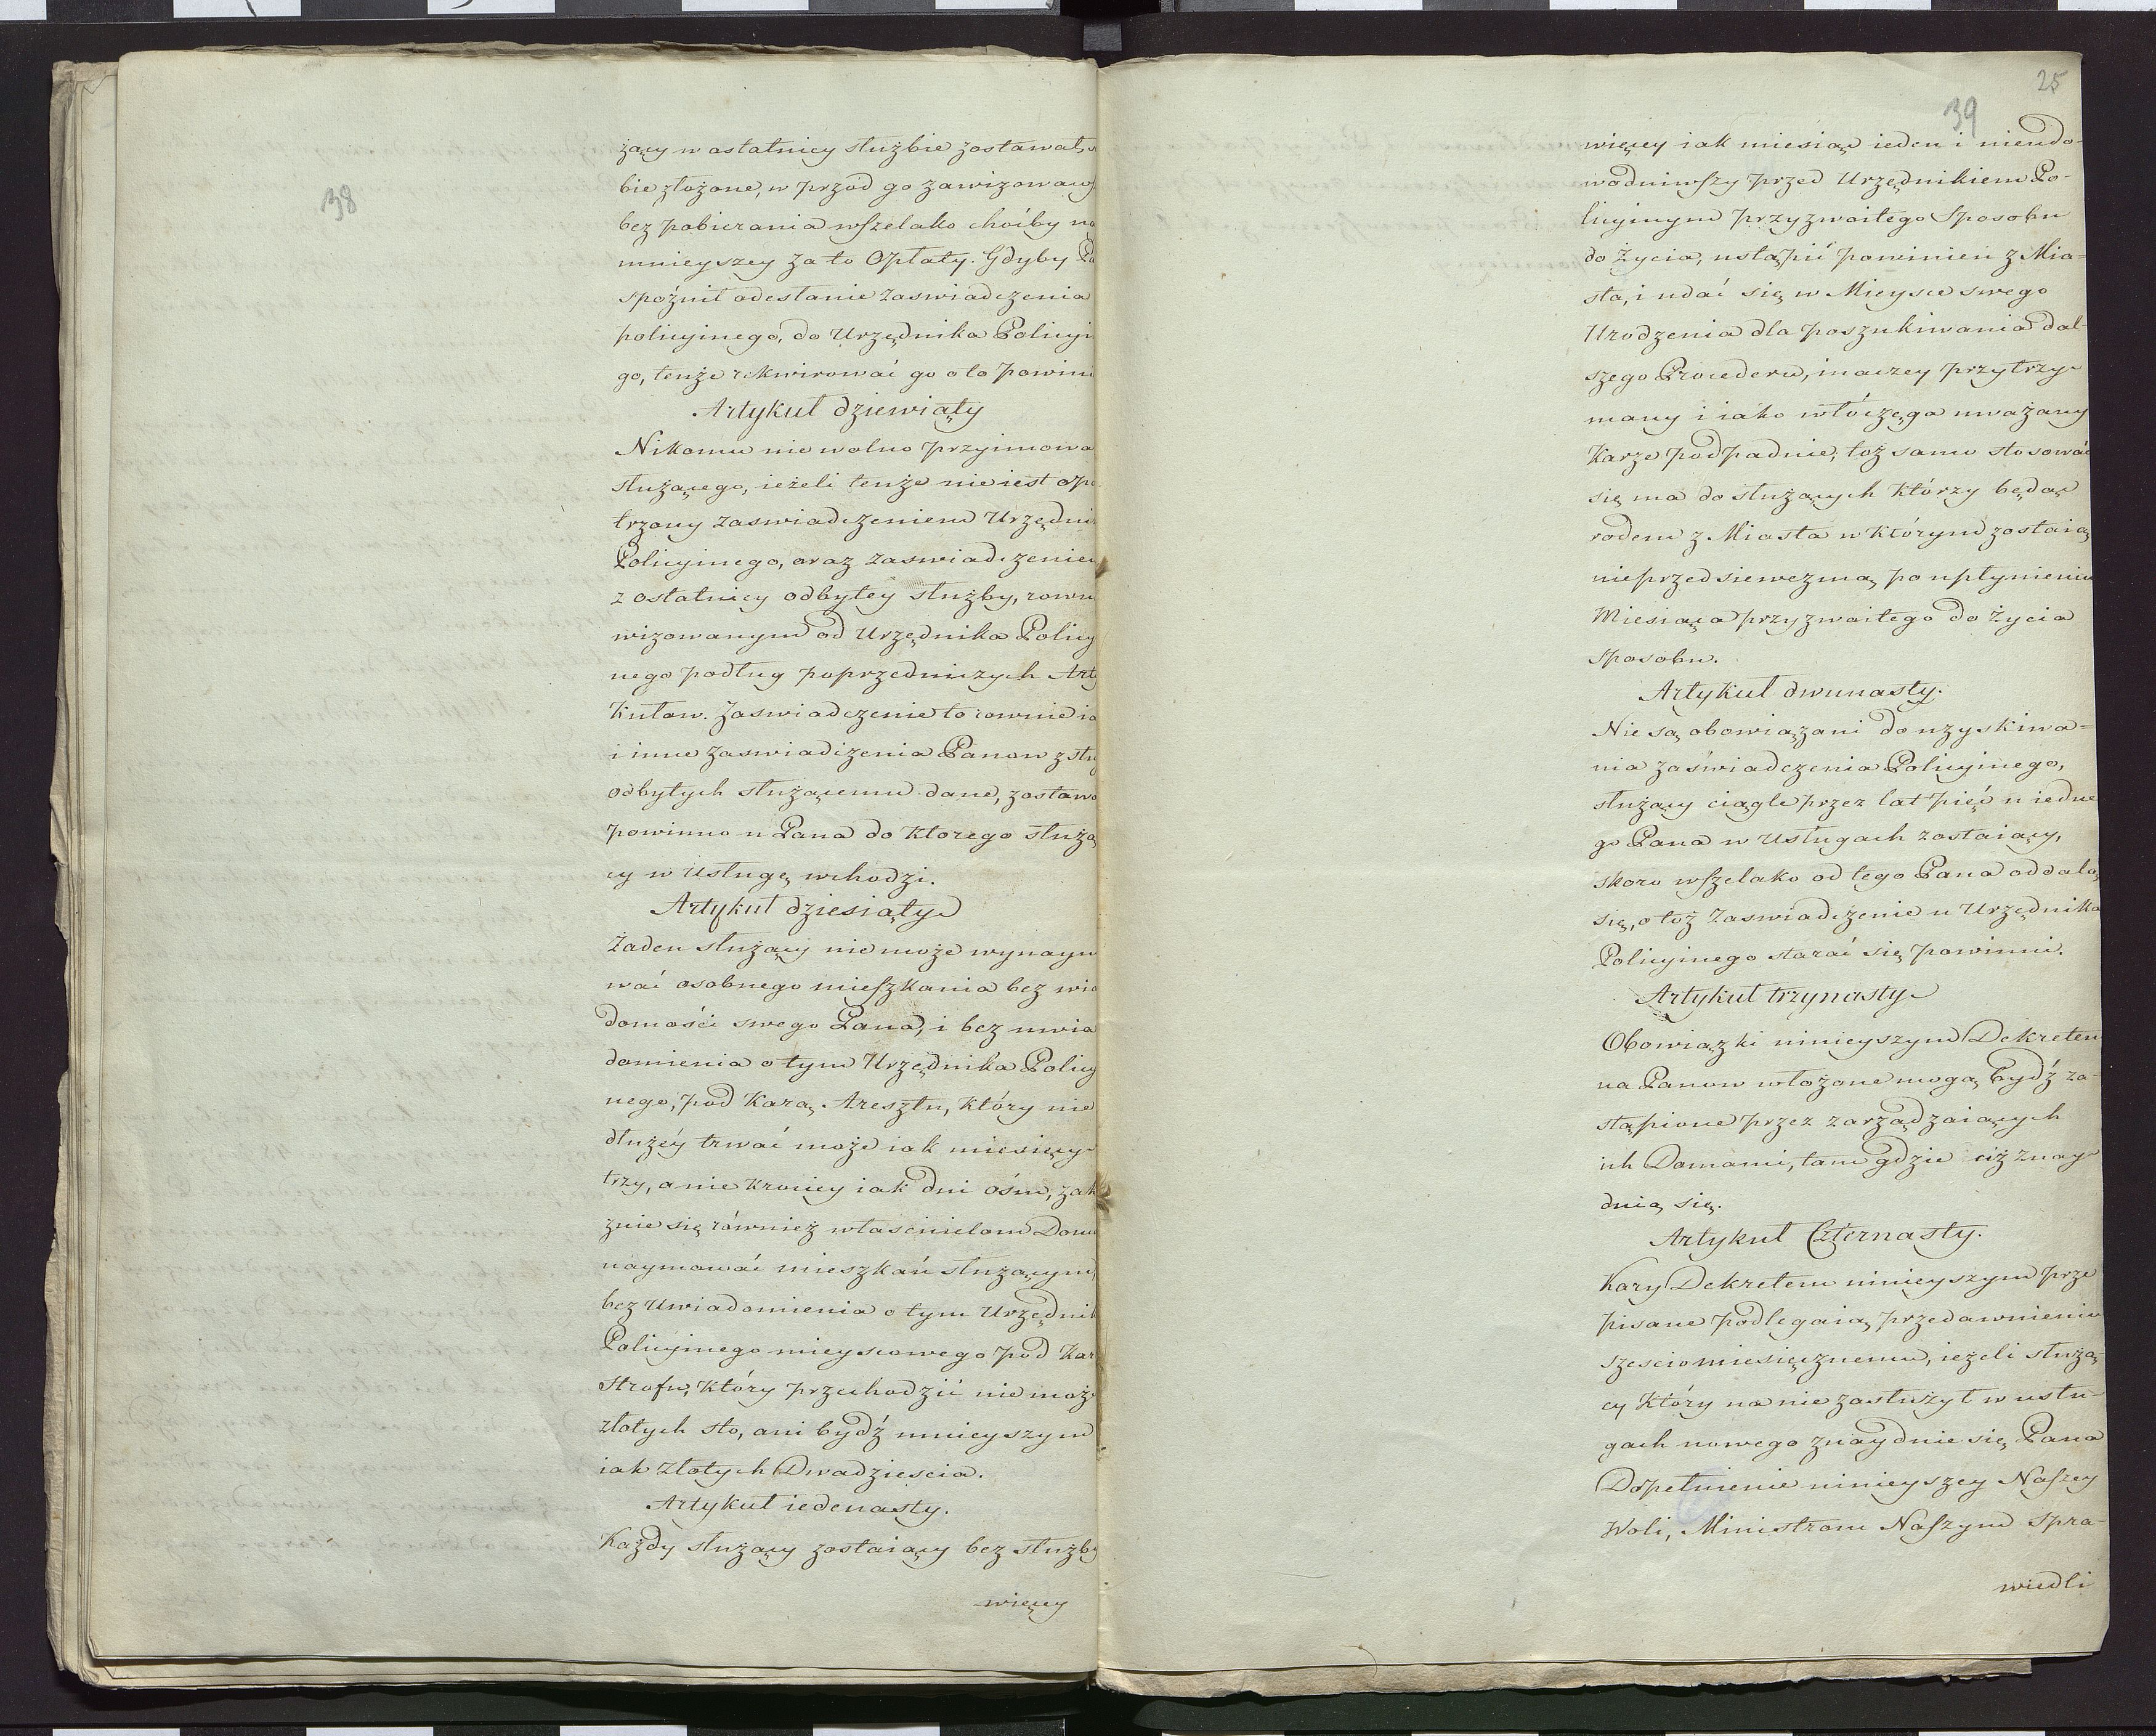 38
żący w ostatniey służbie zostawał, s
bie złożone, w przód go zawizowaw
bez pobierania wszelako choćby na
mnieyszey za to Opłaty. Gdyby Pa
spóźnił odesłanie zaswiadczenia
policyinego, do Urzędnika Policyi
go, tenże rekwirować go o to powin
Artykuł dziewiąty
Nikomu nie wolno przyimowa
służącego, ieżeli tenże nie iest opa
trzony zaswiadczeniem Urzędni
Policyinego, oraz zaswiadczeniem
z ostatniey odbytey służby, rown
wizowanym od Urzędnika Policy
nego podług poprzedniczych Arty
kułow. Zaswiadczenie to rownie ia
i inne zaswiadczenia Panow z słu
odbytych służącemu dane, zostawa
powinno u Pana do ktorego służą
cy w usługę wchodzi.
Artykuł dziesiąty
Żaden służący nie może wynaym
wać osobnego mieszkania bez wia
domości swego Pana, i bez uwia
domienia o tym Urzędnika Policy
nego, pod karą Aresztu, który nie
dłużéy trwać może iak miesięcy
trzy, a nie krociey iak dni ośm, zak
znie się również właścicielom Domu
naymować mieszkań służącym,
bez Uwiadomienia o tym Urzędnik
Policyinego mieyscowego pod kar
Strofu, który przechodzić nie moż
złotych sto, ani bydź mnieyszym
iak złotych Dwadziescia.
Artykuł iedenasty.
Każdy służący zostaiący bez służby
więcey
25
39
więcey iak miesiąc ieden i nieudo-
wodniwszy przed Urzędnikiem Po-
licyinym przyzwoitego Sposobu
do życia, ustąpić powinien z Mia-
sta, i udać się w Mieysce swego
Urodzenia dla poszukiwania dal-
szego Procederu, inaczey przytrzy-
many i iako włóczęga uważany
karze podpadnie, toż samo stosować
się ma do służących którzy będąc
rodem z Miasta w którym zostaią
nieprzedsiewezmą po upłynieniu
Miesiąca przyzwoitego do życia
sposobu.
Artykuł dwunasty.
Nie są obowiązani do uzyskiwa-
nia zaświadczenia Policyinego,
służący ciągle przez lat pięć u iedne
go Pana w usługach zostaiący,
skoro wszelako od tego Pana oddalą
się, o toż Zaswiadczenie u Urzędnika
Policyinego starać się powinni.
Artykuł trzynasty
Obowiązki ninieyszym Dekretem
na Panow włożone mogą bydź za-
stąpione przez zarządzaiących
ich Domami, tam gdzie ciż znay
duią się.
Artykuł Czternasty.
Kary Dekretem ninieyszym prze
pisane podlegaią przedawnieniu
szesciomiesięcznemu, ieżeli służą-
cy który na nie zasłużył w usłu-
gach nowego znayduie się Pana
Dopełnienie ninieyszey Naszey
Woli, Ministrom Naszym Spra-
wiedli